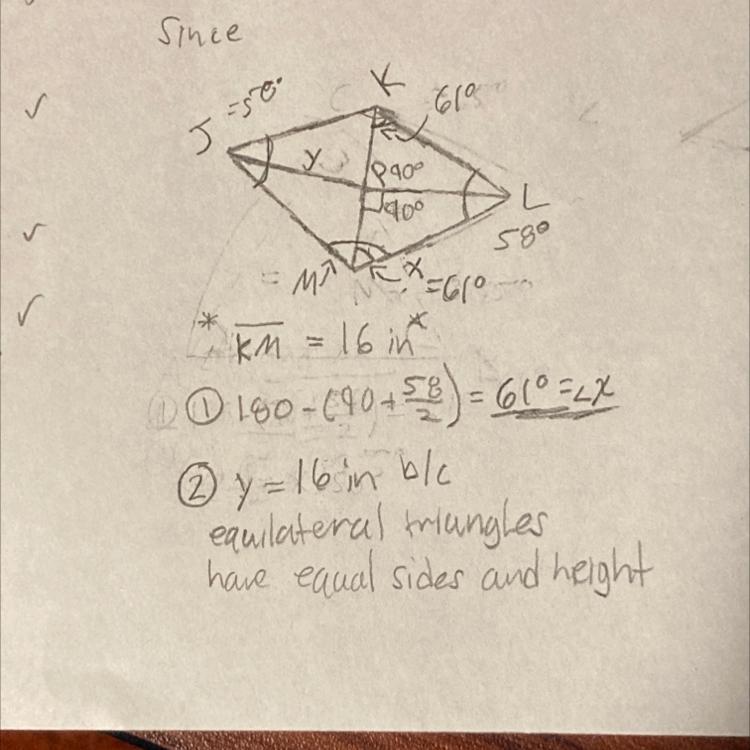 Since
K
61°
J =58°
y
90°
90°
L
58°
= M
x =61°
* KM = 16 in *
① 180 - (90 + 58/2) = 61° = ∠x
② y = 16 in b/c
equilateral triangles
have equal sides and height